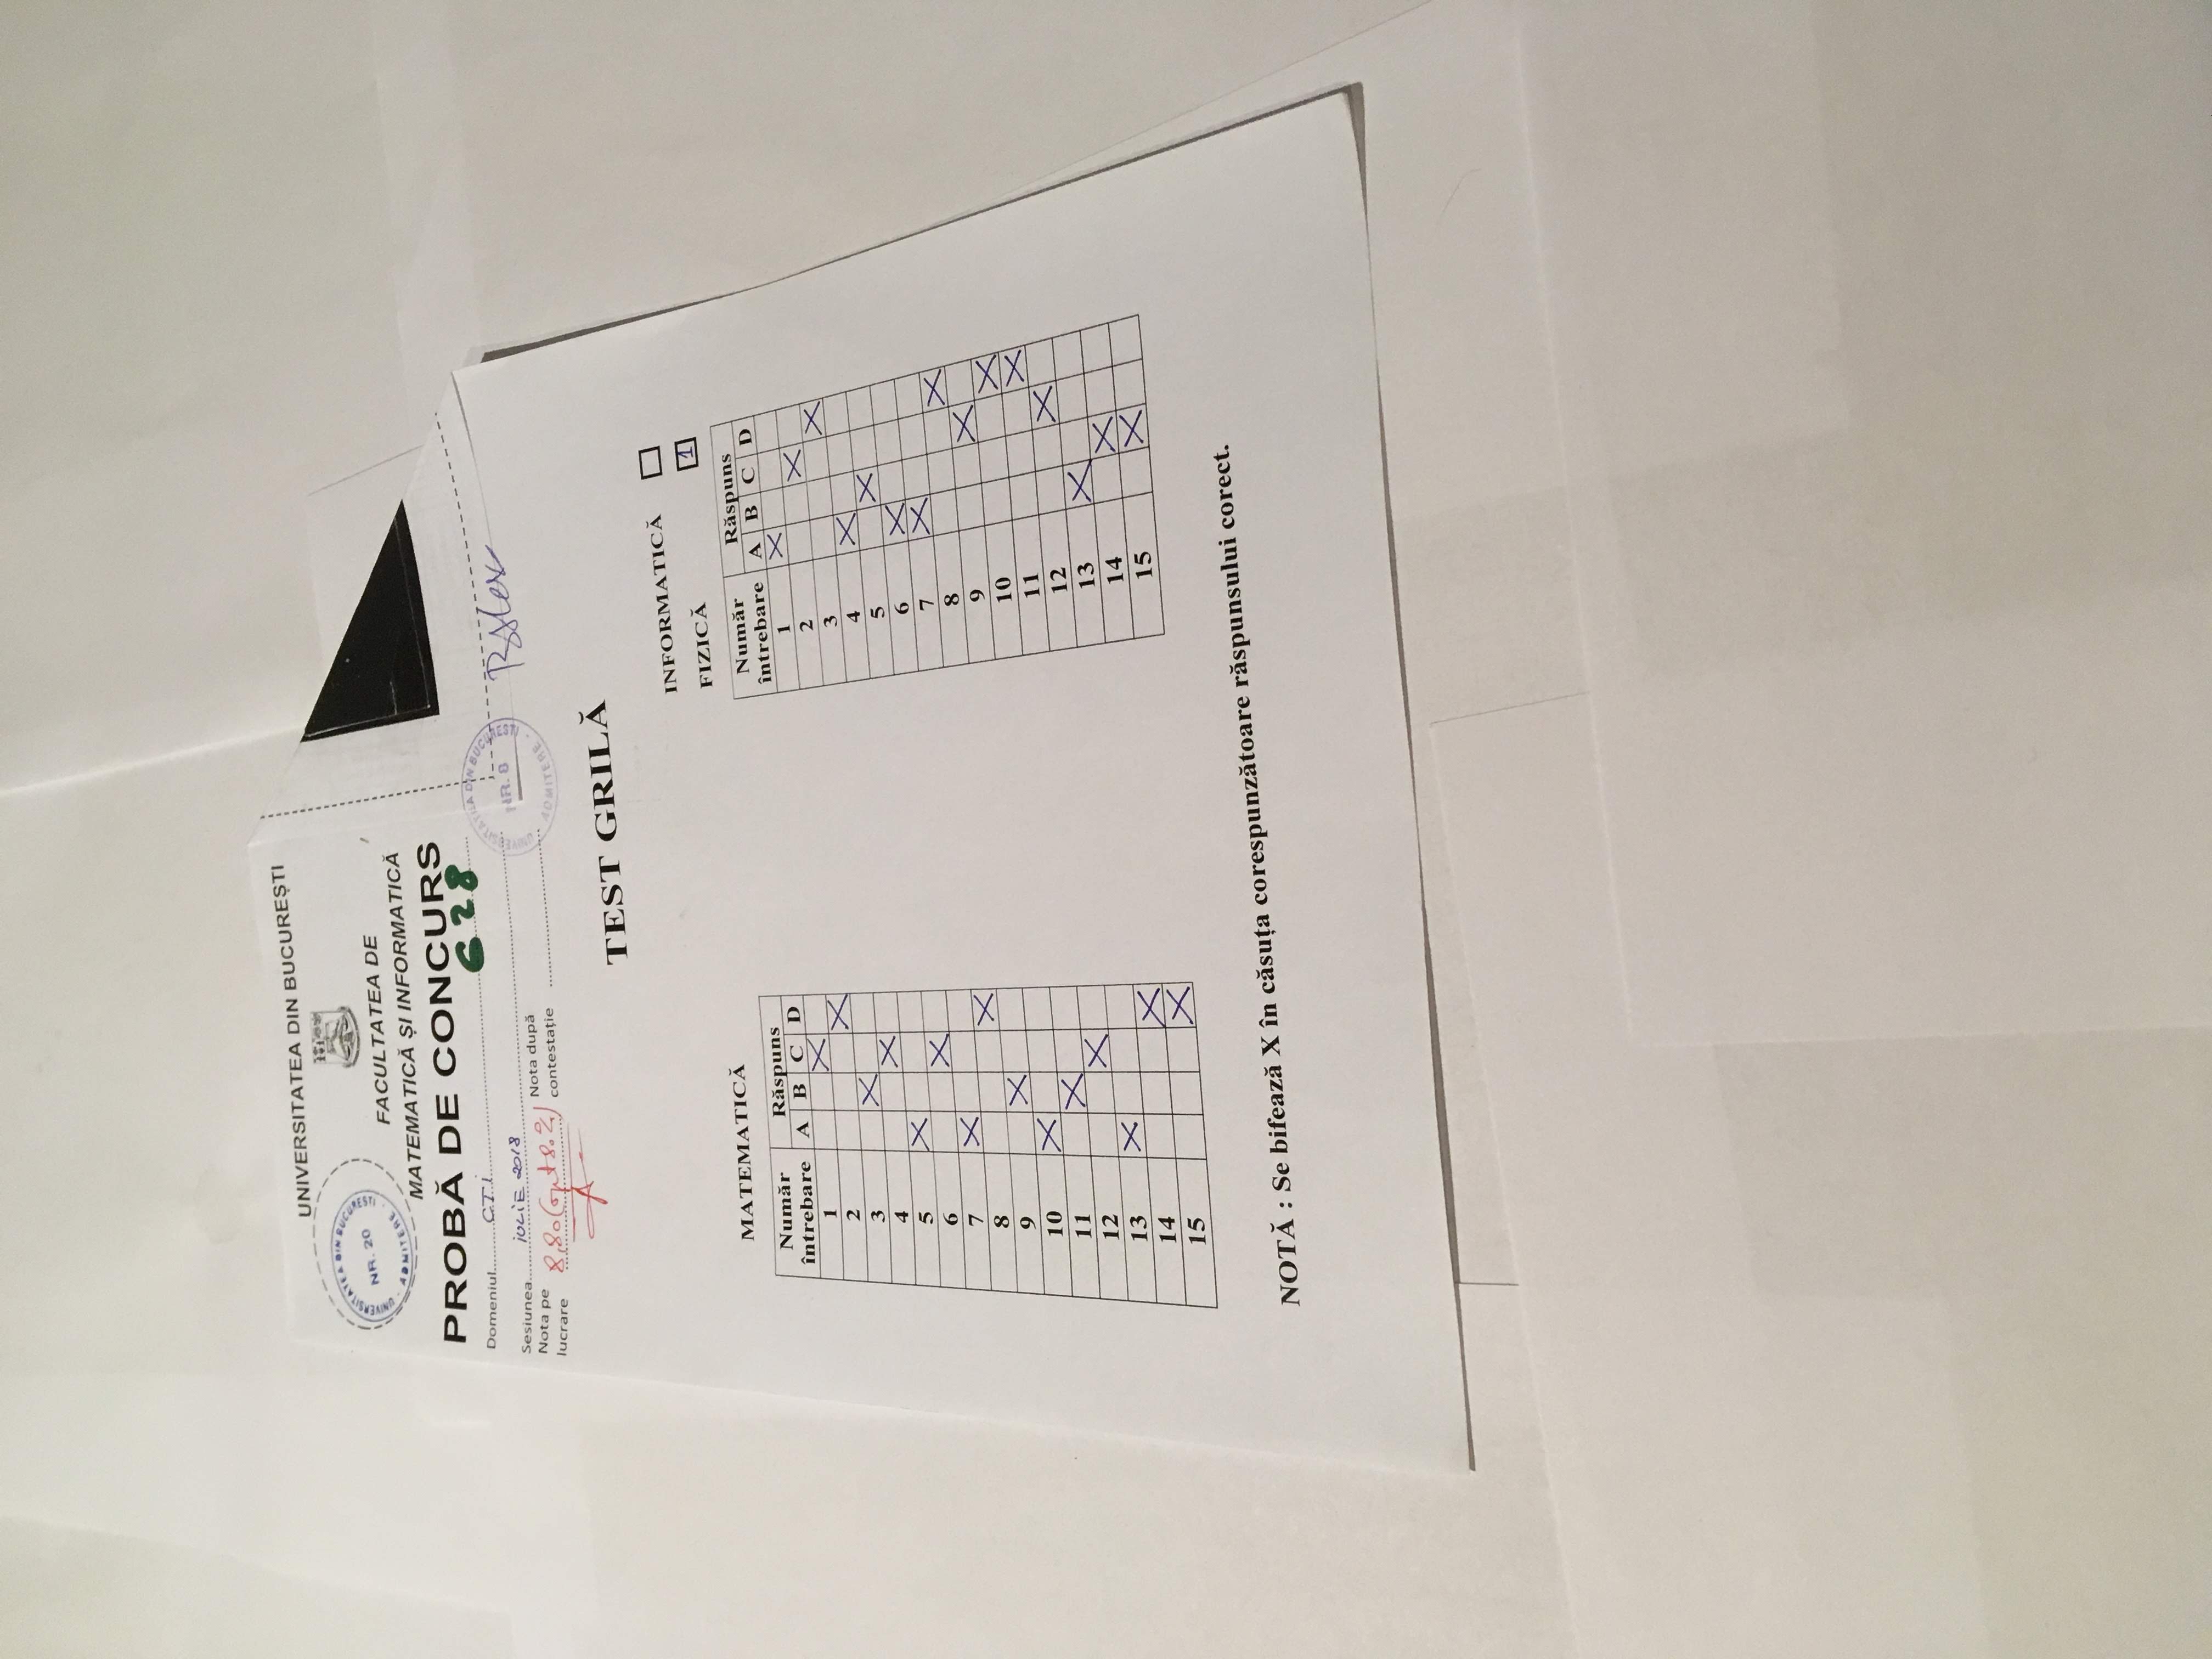 UNIVERSITATEA DIN BUCUREȘTI
UNIVERSITATEA DIN BUCUREȘTI
NR. 20
ADMITERE
FACULTATEA DE
MATEMATICĂ ȘI INFORMATICĂ
PROBĂ DE CONCURS
628
Domeniul CTI
Sesiunea IULIE 2018
Nota pe lucrare 8,80 (opt 8.%)
Nota după contestație
UNIVERSITATEA DIN BUCUREȘTI
NR. 8
ADMITERE
TEST GRILĂ
INFORMATICĂ
FIZICĂ 1
MATEMATICĂ
Număr întrebare Răspuns
A B C D
1 X
2 X
3 X
4 X
5 X
6 X
7 X
8 X
9 X
10 X
11 X
12 X
13 X
14 X
15 X
Număr întrebare Răspuns
A B C D
1 X
2 X
3 X
4 X
5 X
6 X
7 X
8 X
9 X
10 X
11 X
12 X
13 X
14 X
15 X
NOTĂ : Se bifează X în căsuța corespunzătoare răspunsului corect.